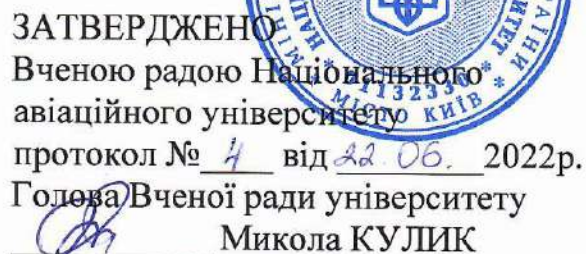 ЗАТВЕРДЖЕНО
Вченою радою Національного
авіаційного університету
протокол № 4 від 22.06. 2022р.
Голова Вченої ради університету
Микола КУЛИК
МІСТО КИЇВ